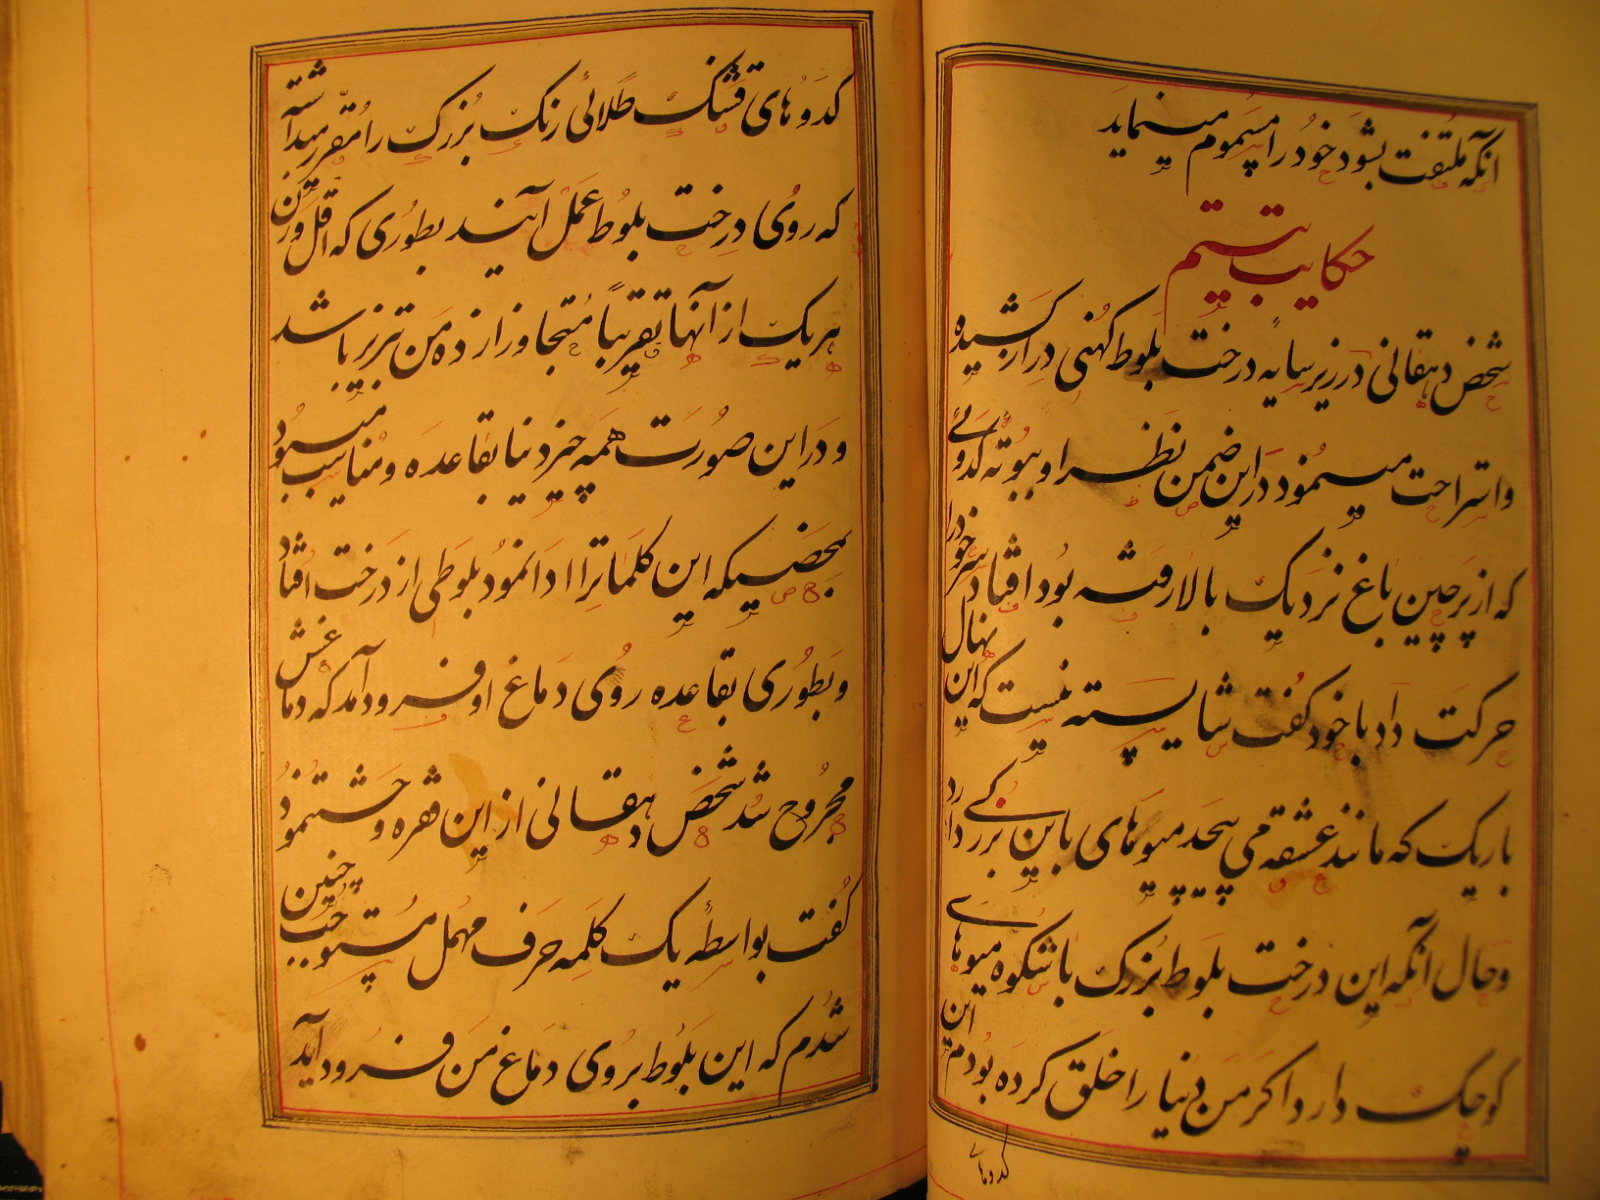 آنکه ملتفت بشود خود را مسموم مینماید
حکایت بیستم
شخص دهقانی در زیر سایه درخت بلوط کهنی دراز کشیده
و استراحت مینمود در این ضمن نظر او ببوته کدوئی
که از پرچین باغ نزدیک بالا رفته بود افتاد سر خود را
حرکت داد با خود گفت شایسته نیست که این نهال
باریک که مانند عشقه می پیچد میوهای باین بزرگی دارد
و حال آنکه این درخت بلوط بزرگ با شکوه میوهای
کوچک دارد اگر من دنیا را خلق کرده بودم این
کدوهای
کدوهای قشنگ طلائی رنگ بزرگ را مقرر میداشتم
که روی درخت بلوط عمل آیند بطوری که اقل وزن
هریک از آنها تقریباً متجاوز از ده من تبریز باشد
و در این صورت همه چیز دنیا بقاعده و مناسب میبود
بمحضیکه این کلماترا ادا نمود بلوطی از درخت افتاد
و بطوری بقاعده روی دماغ او فرود آمد که دماغش
مجروح شد شخص دهقانی از این فقره وحشت نمود
گفت بواسطهٔ یک کلمه حرف مهمل مستوجب چنین
شدم که این بلوط بروی دماغ من فرود آید